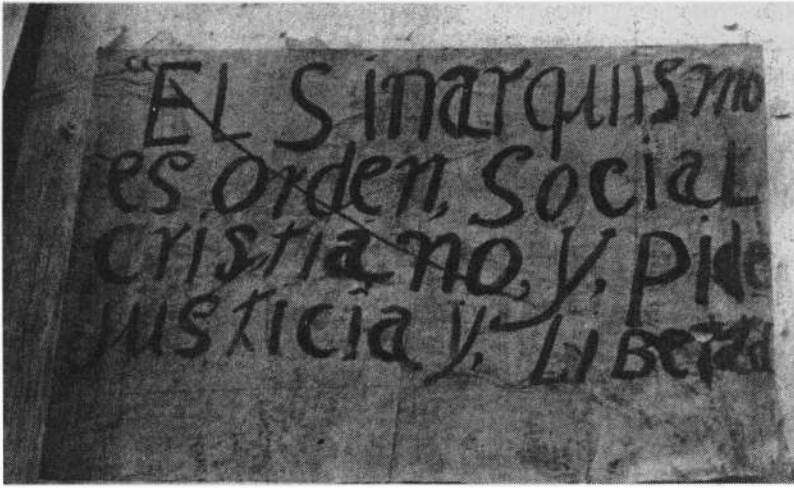 "EL Sinarquismo
es orden, Social
cristiano, y, pide
justicia y, LIBertad